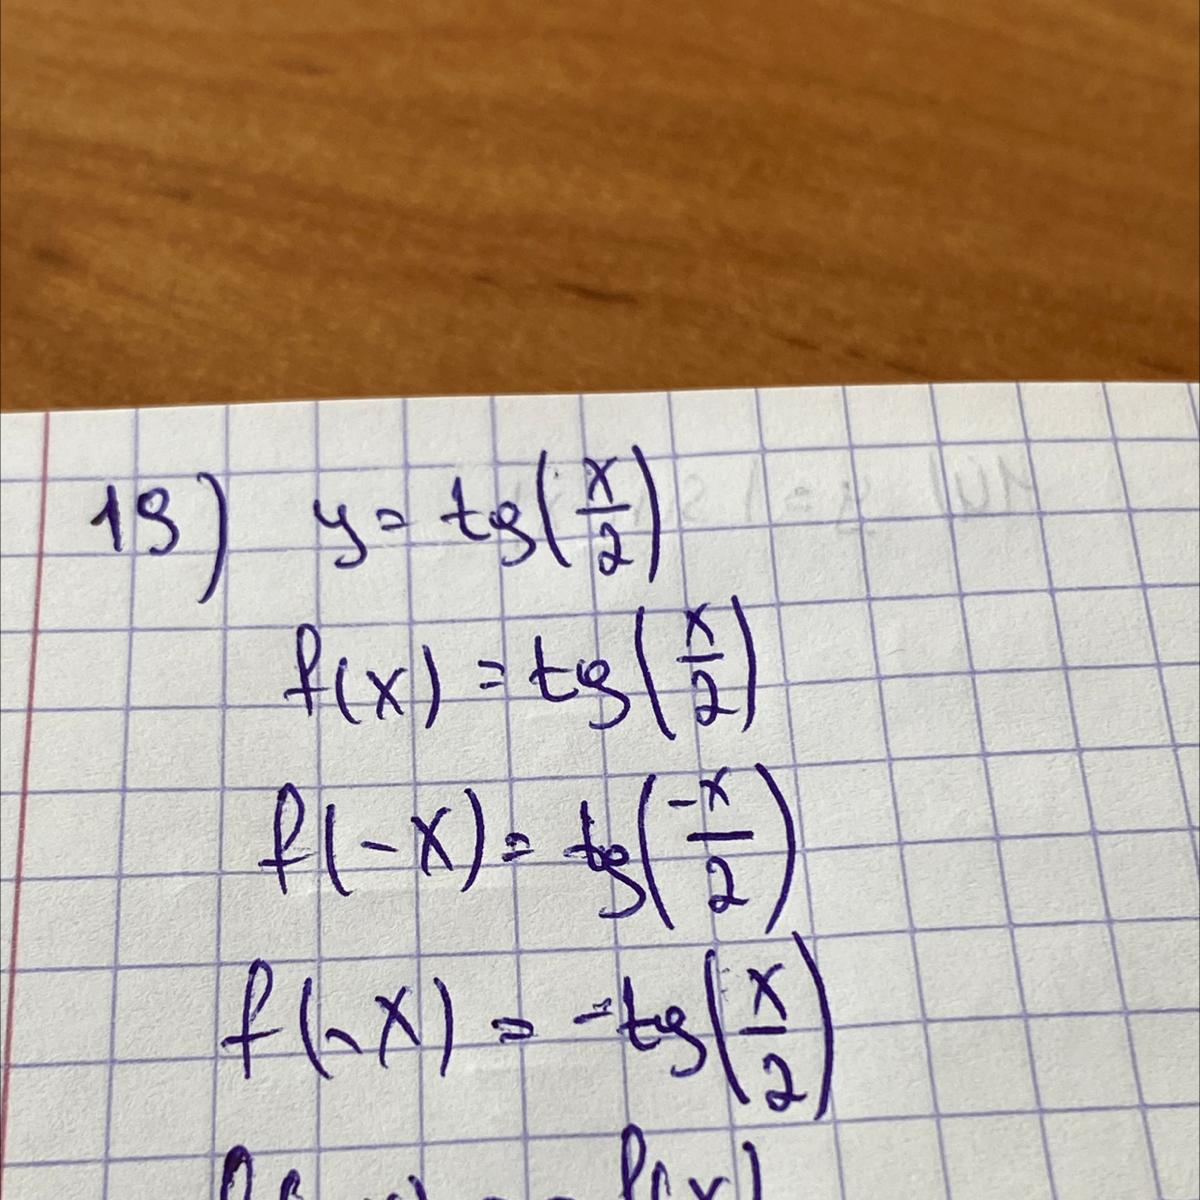 19) y = tg(x/2)
f(x) = tg(x/2)
f(-x) = tg(-x/2)
f(-x) = -tg(x/2)
f(x)